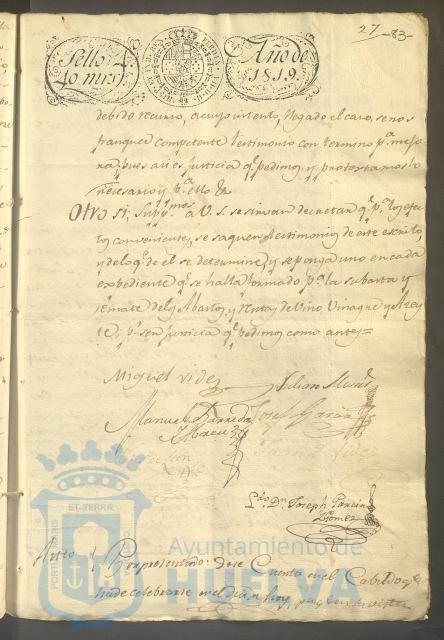 27 -83-
Sello 4º
40 mrs
Año de
1819.
debido recurso, a cuyo intento, llegado el caso, se nos
franquee competente testimonio con termino pª mejo
rar, pues asi es justicia q.e pedimos, y protestamos lo
necesario y pª ello &
Otro si, Supp.mos a V.S. se sirvan decretar q.e pª los efec
tos convenientes, se saquen testimonios de este escrito,
y de lo q.e de el se determine, y se ponga uno en cada
expediente q.e se halla formado pª la subasta y
remate de los Abastos, y rentas de Vino, Vinagre y Azey
te; p.r ser justicia q.e pedimos como antes=
Miguel Vides
Julian
Manuel Barreda
Josef Garcia
Ldo. Dn. Joseph Garcia
Gomez
Auto
Por presentado: Dese Cuenta en el Cabildo q.e
ha de celebrarse en el dia de hoy
ET TERRÆ
PORTUS MARIS
Ayuntamiento de
HUELVA